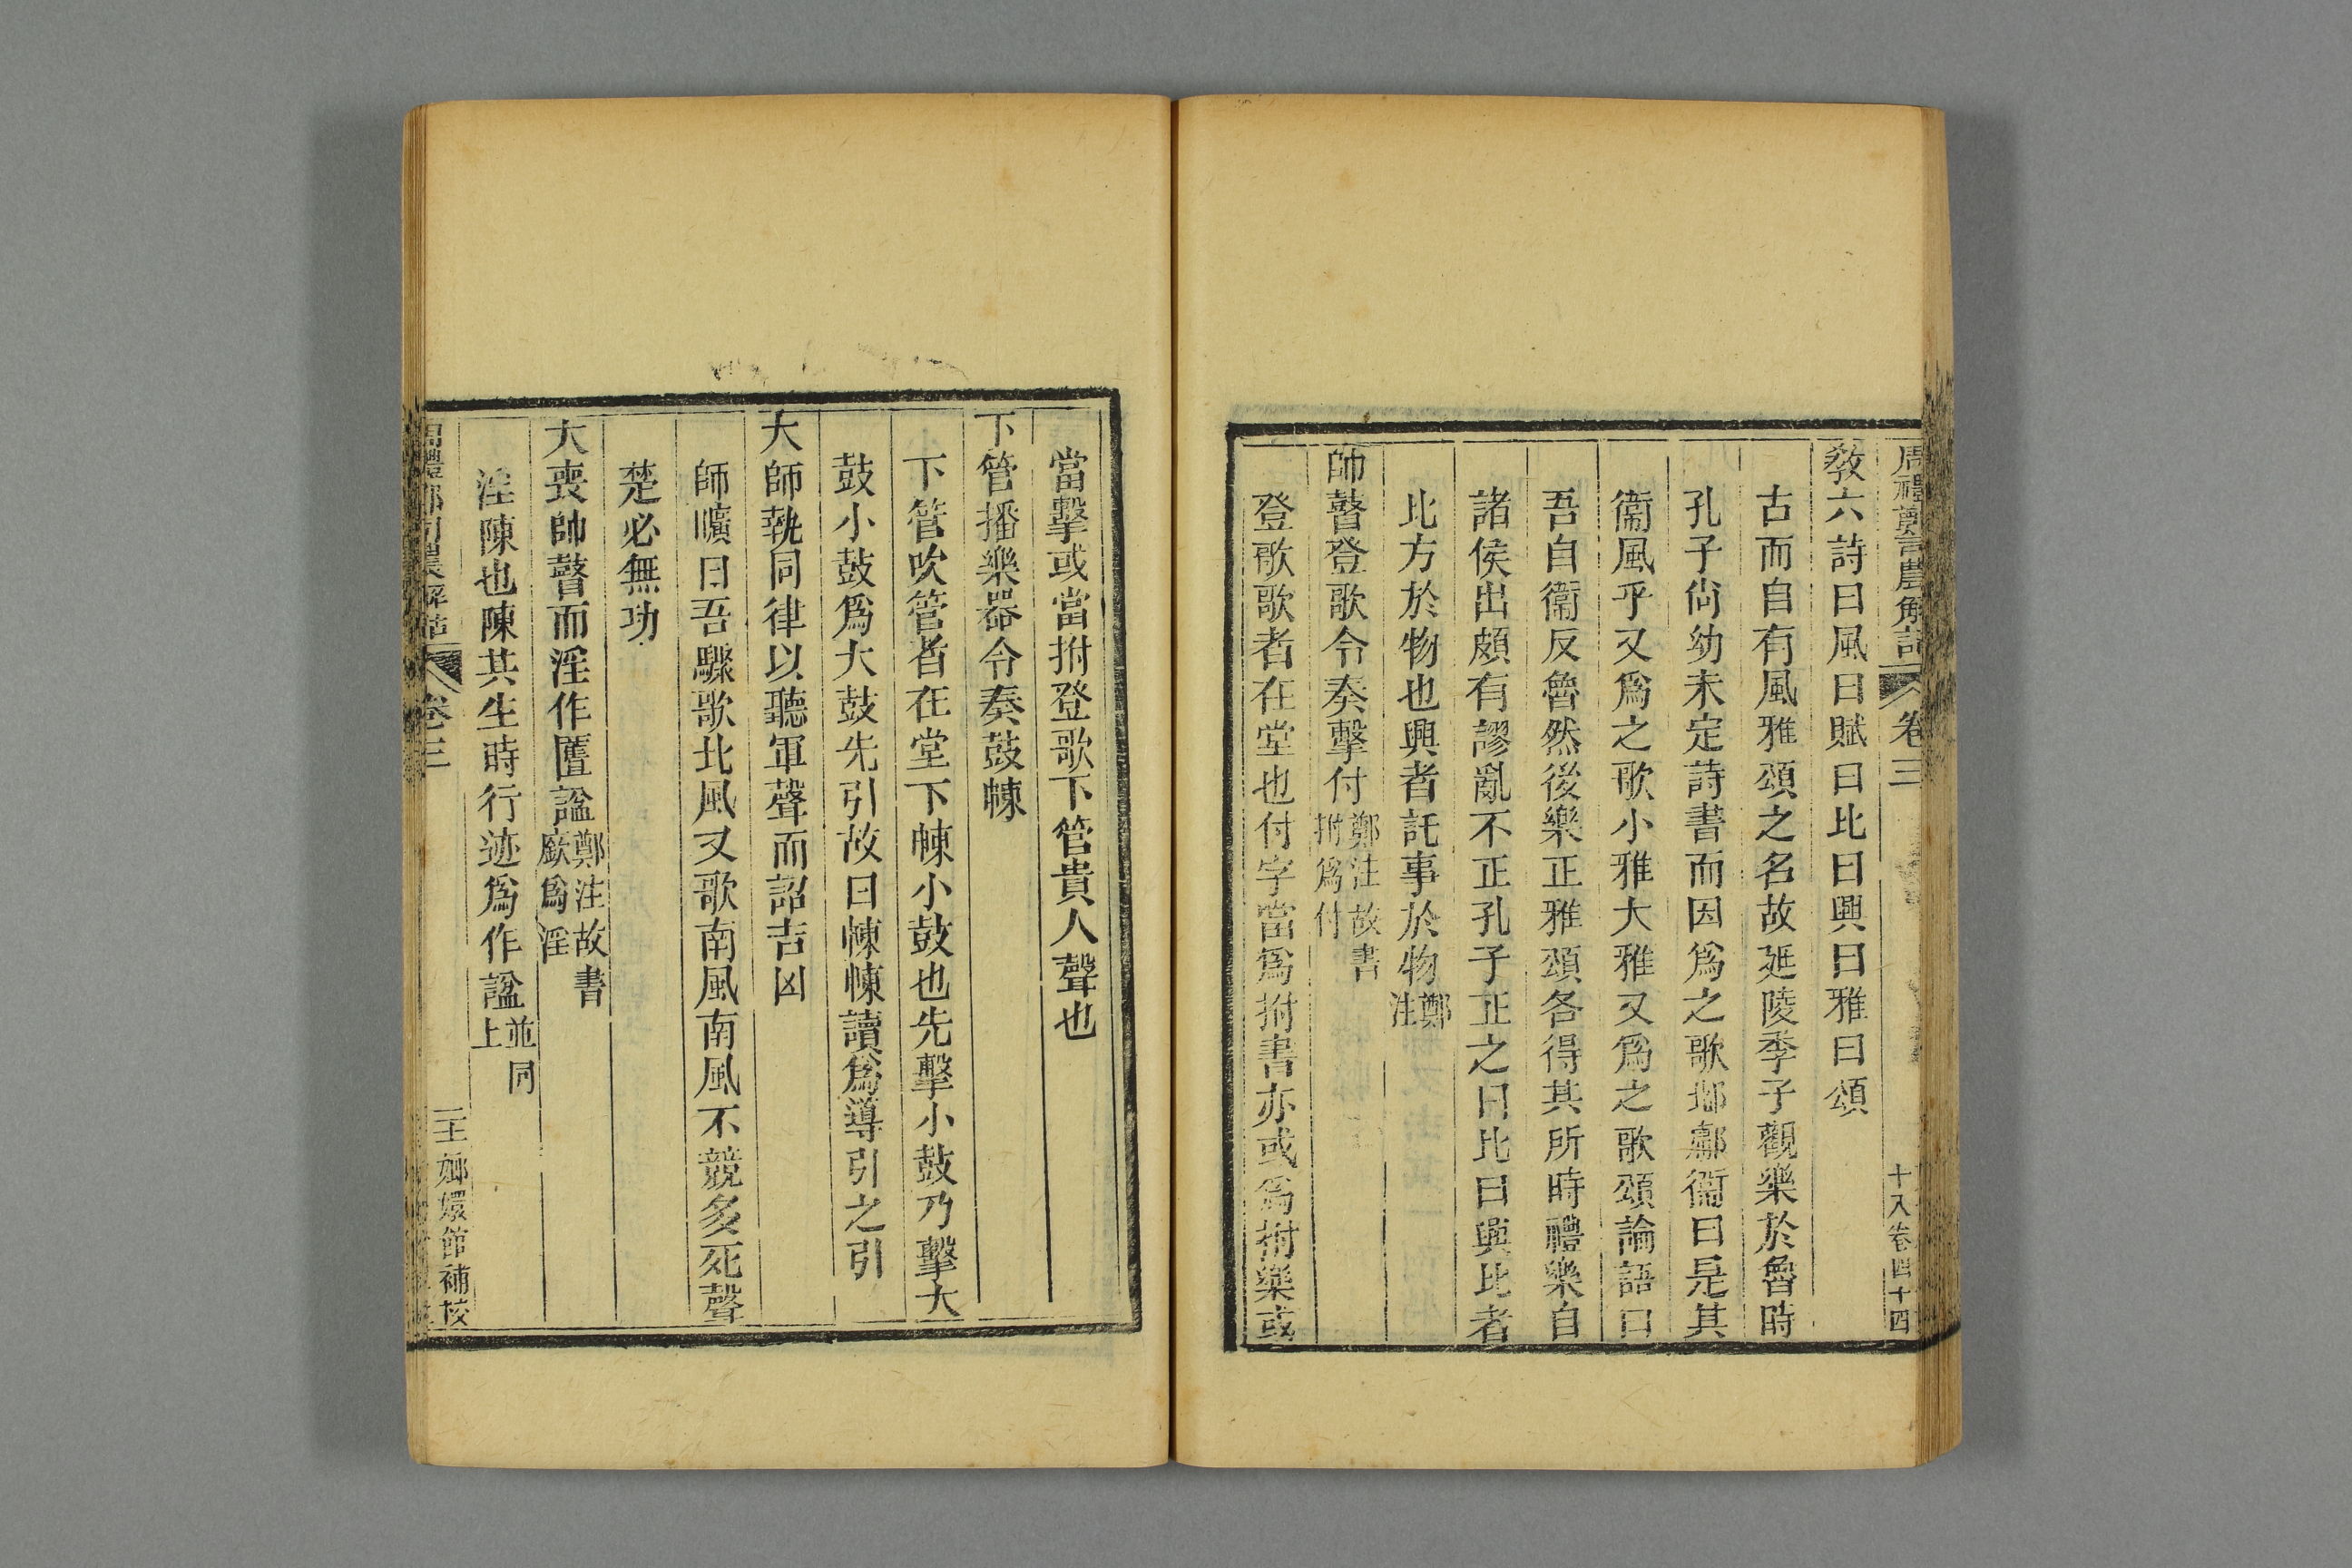 周禮鄭司農解詁 卷三 十八卷四十四
教六詩曰風曰賦曰比曰興曰雅曰頌
古而自有風雅頌之名故延陵季子觀樂於魯時
孔子尙幼未定詩書而因爲之歌邶鄘衞曰是其
衞風乎又爲之歌小雅大雅又爲之歌頌論語曰
吾自衞反魯然後樂正雅頌各得其所時禮樂自
諸侯出頗有謬亂不正孔子正之曰比曰興比者
比方於物也興者託事於物鄭注
帥瞽登歌令奏擊付鄭注故書拊爲付
登歌歌者在堂也付字當爲拊書亦或爲拊樂或
當擊或當拊登歌下管貴人聲也
下管播樂器令奏鼓㯥
下管吹管者在堂下㯥小鼓也先擊小鼓乃擊大
鼓小鼓爲大鼓先引故曰㯥㯥讀爲導引之引
大師執同律以聽軍聲而詔吉凶
師曠曰吾驟歌北風又歌南風南風不競多死聲
楚必無功
大喪帥瞽而淫作匶諡鄭注故書廞爲淫
淫陳也陳其生時行迹爲作諡並同上
周禮鄭司農解詁 卷三 嫏嬛館補校